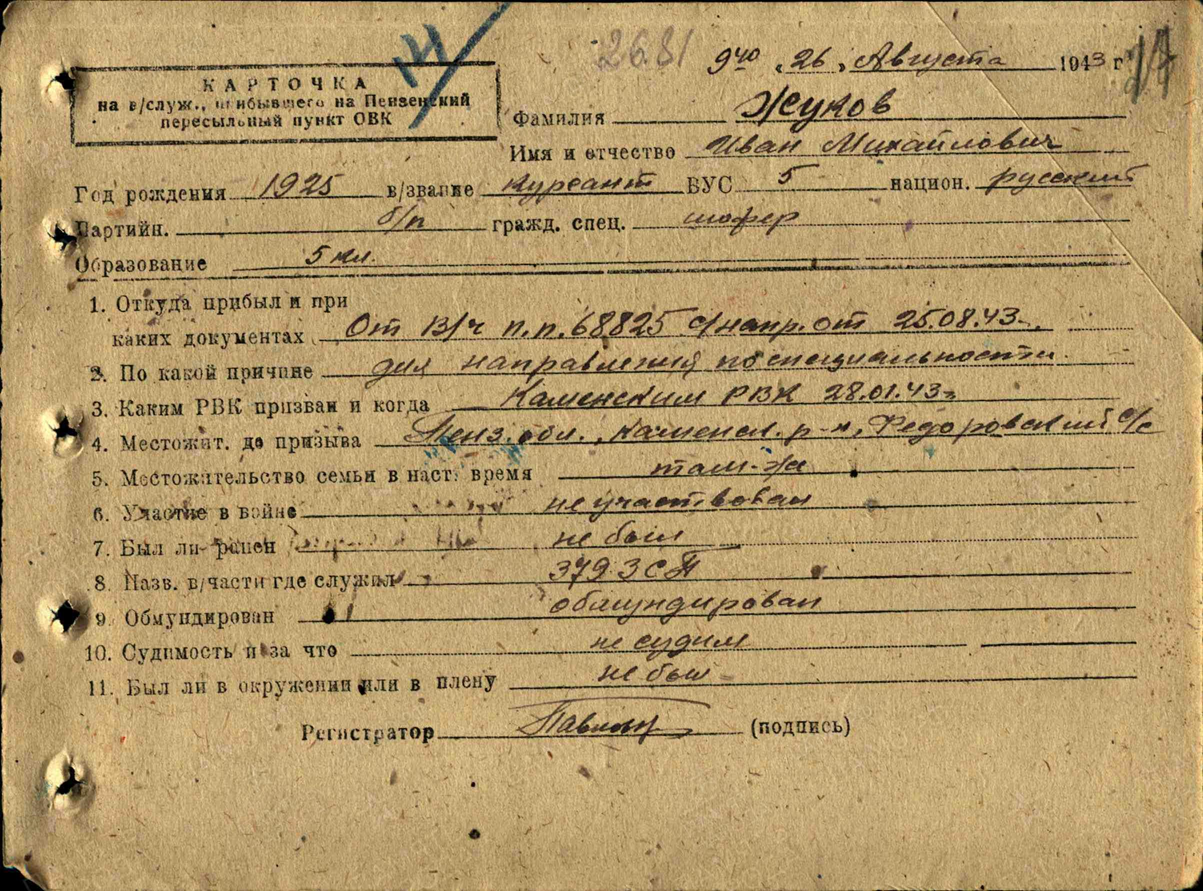 14
2681
9 ч0 „26„ Августа 1943 г
КАРТОЧКА
на в/служ., прибывшего на Пензенский
пересыльный пункт ОВК
Фамилия Жуков
Имя и отчество Иван Михайлович
Год рождения 1925 в/звание курсант ВУС 5 национ. русский
Партийн. б/п гражд. спец. шофер
Образование 5 кл.
1. Откуда прибыл и при
каких документах От В/ч п.п. 68825 с/напр. от 25.08.43
2. По какой причине для направления по специальности
3. Каким РВК призван и когда Каменским РВК 28.01.43
4. Местожит. до призыва Пенз. обл., Каменск. р-н, Федоровский с/с
5. Местожительство семьи в наст. время там-же
6. Участие в войне не участвовал
7. Был ли ранен не был
8. Назв. в/части где служил 379 ЗСП
9. Обмундирован обмундирован
10. Судимость и за что не судим
11. Был ли в окружении или в плену не был
Регистратор (подпись)